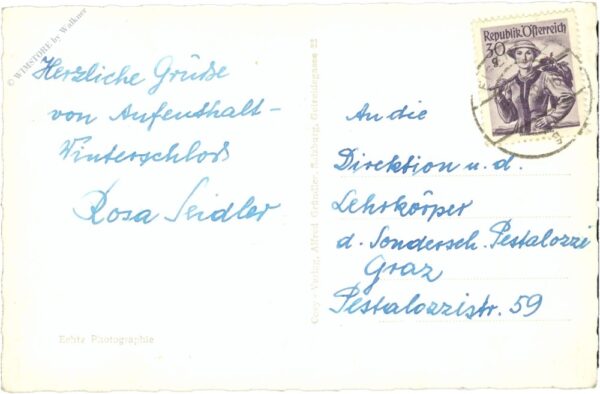 © WIMSTORE by Walkner
Herzliche Grüße
von Aufenthalt-
Winterschloß
Rosa Seidler
Echte Photographie
Copy - Verlag, Alfred Gründler, Salzburg,
Republik Österreich
30
g
An die
Direktion u. d.
Lehrkörper
d. Sondersch. Pestalozzi
Graz
Pestalozzistr. 59